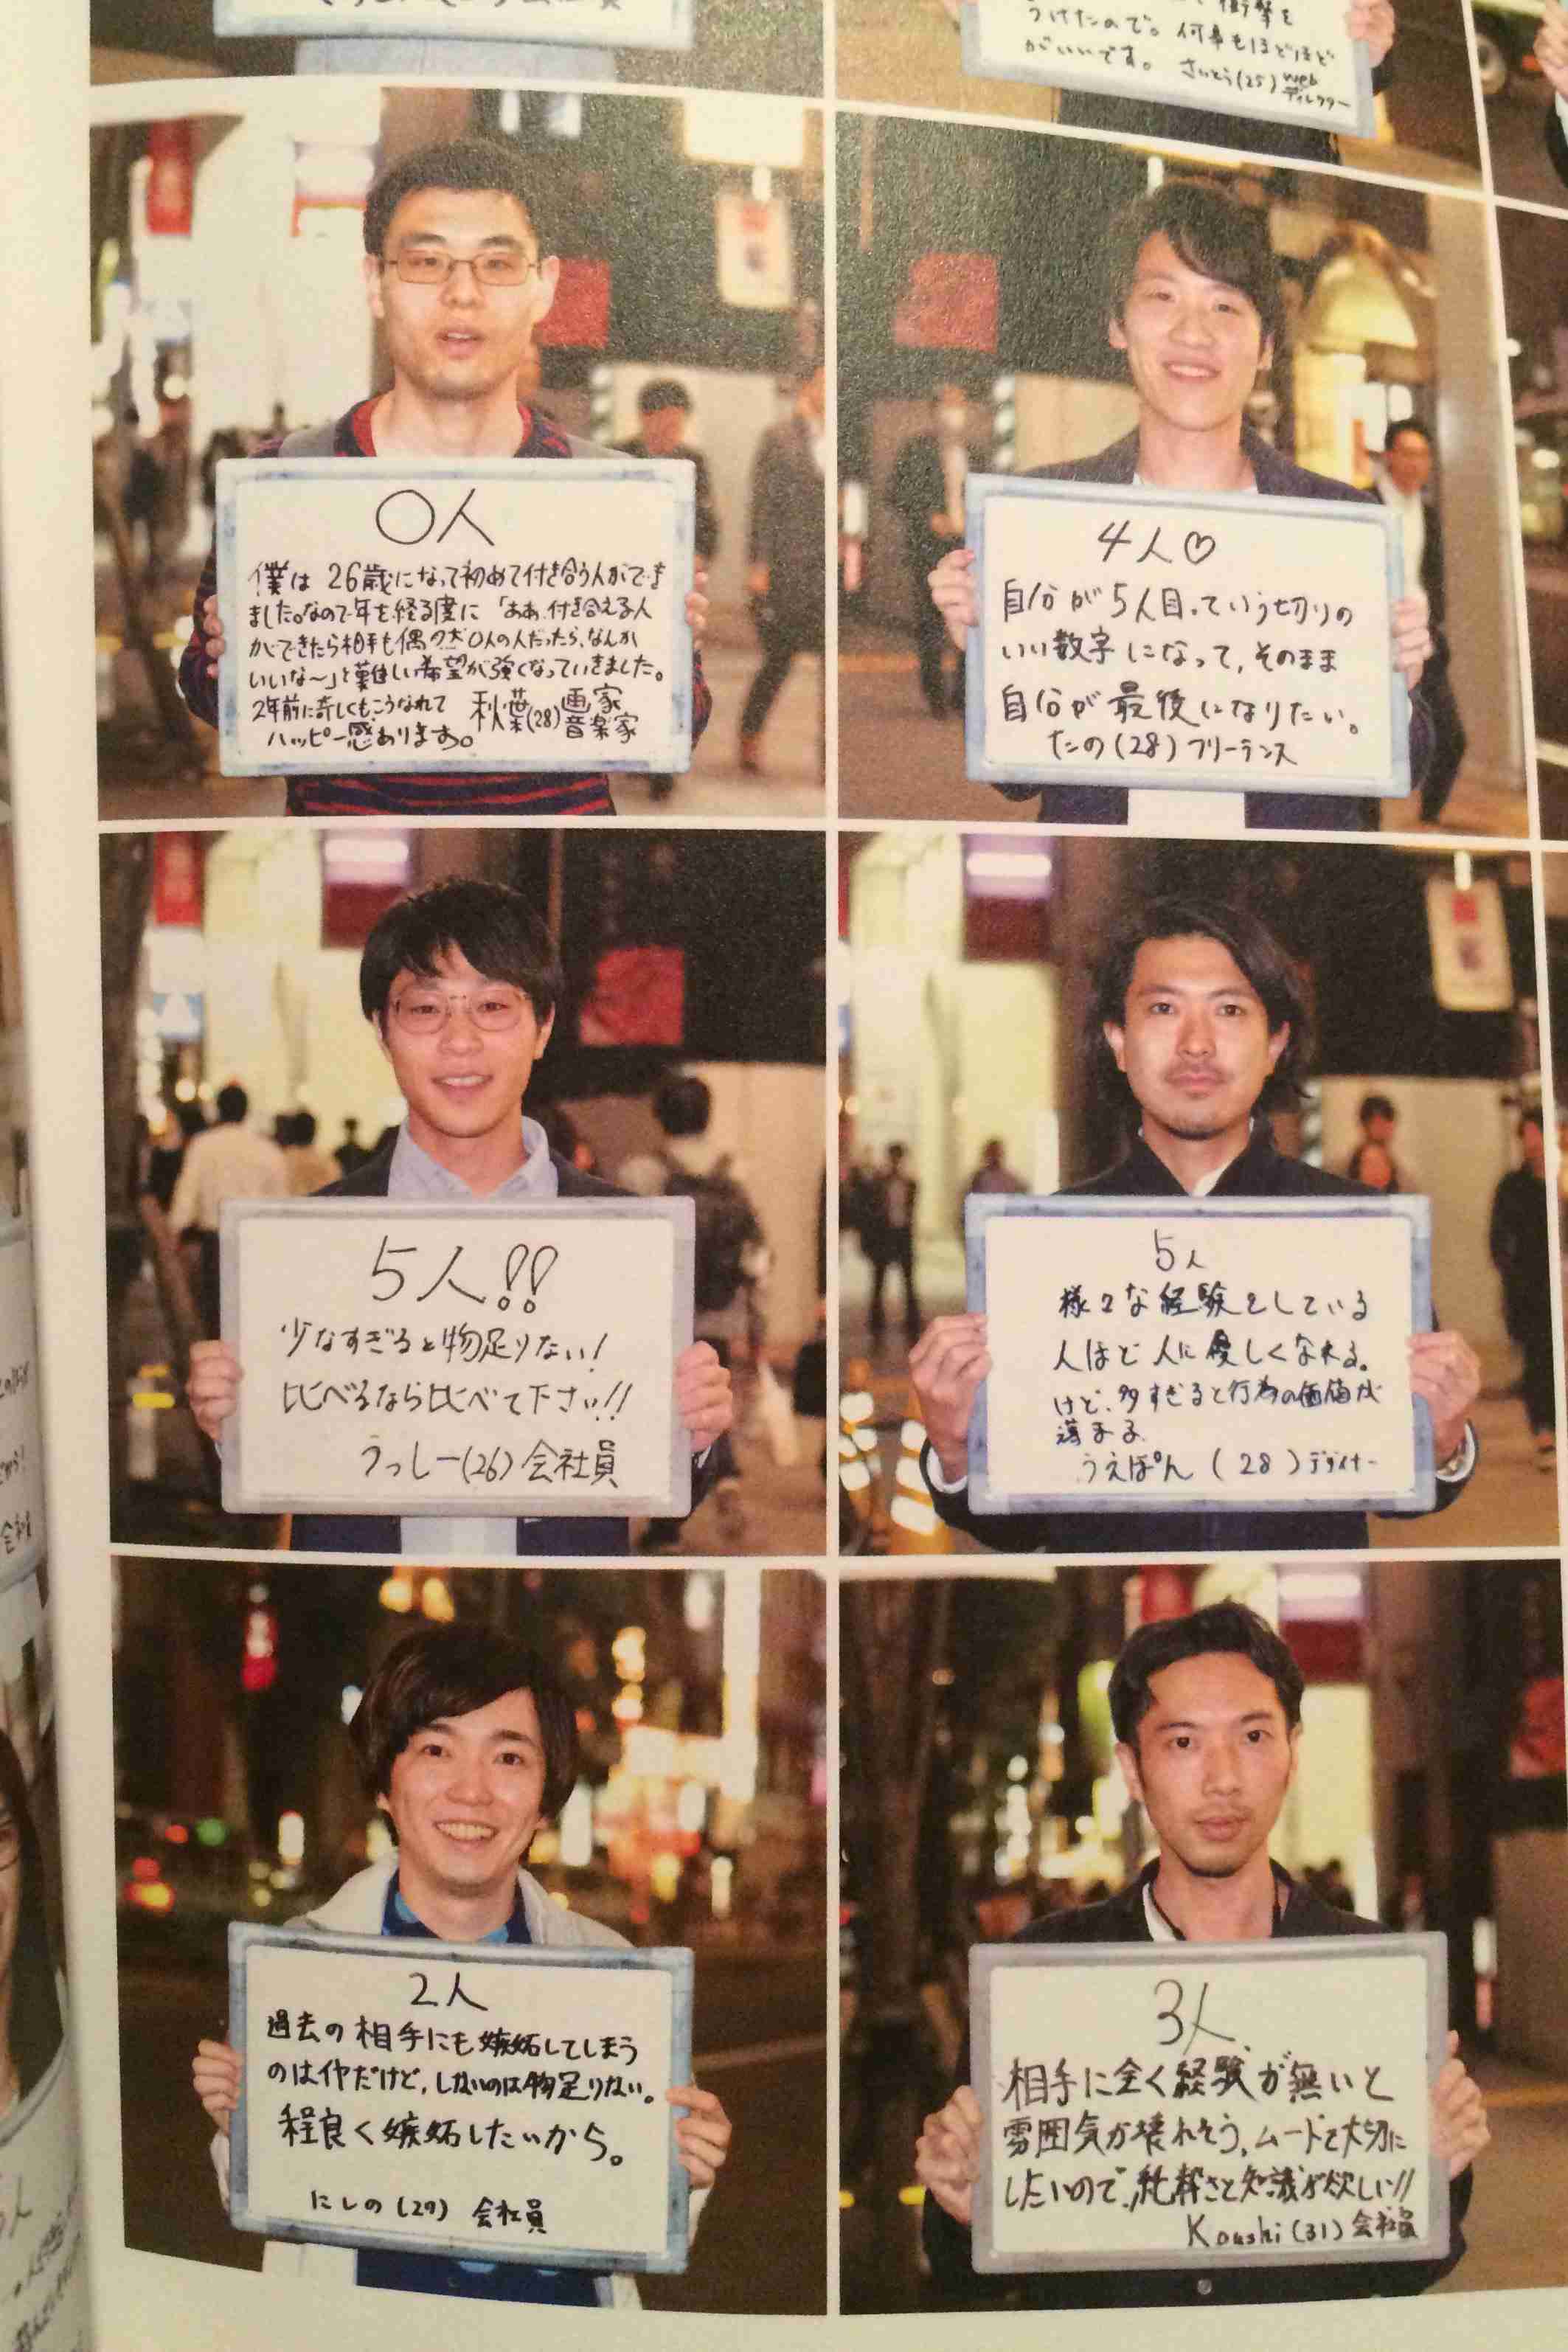 衝撃を
うけたので。何事もほどほど
がいいです。さいとう(25)web
ディレクター
0人
僕は26歳になって初めて付き合う人ができ
ました。なので年を経る度に「ああ、付き合える人
ができたら相手も偶然0人の人だったら、なんか
いいな〜」と難しい希望が強くなっていきました。
2年前に奇しくもこうなれて
ハッピー感あります。
秋葉(28)画家
音楽家
4人♡
自分が5人目っていう切りの
いい数字になって、そのまま
自分が最後になりたい。
たの(28)フリーランス
5人!!
少なすぎると物足りない!
比べるなら比べて下さい!!
うっしー(26)会社員
5人
様々な経験をしている
人ほど人に優しくなれる。
けど、多すぎると行為の価値が
薄まる
うえぽん(28)デザイナー
2人
過去の相手にも嫉妬してしまう
のはイヤだけど、しないのは物足りない。
程良く嫉妬したいから。
にしの(27)会社員
3人
相手に全く経験が無いと
雰囲気が壊れそう、ムードを大切に
したいので、純粋さと知識が欲しい!!
Koushi(31)会社員